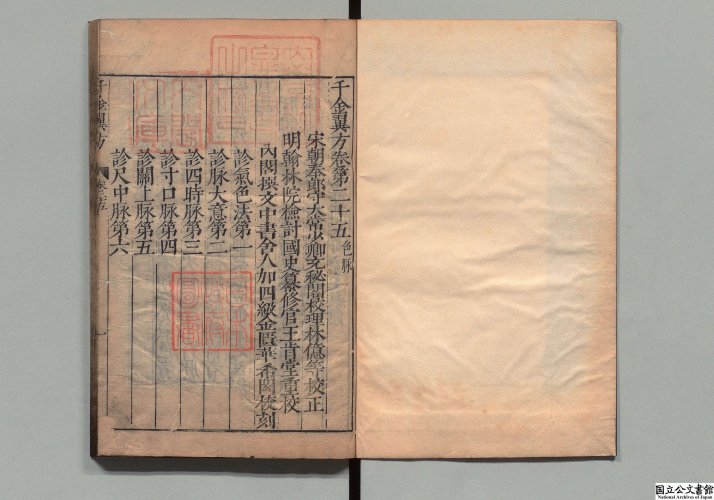 千金翼方卷第二十五 色脉
宋朝奉郎守太常少卿充秘閣校理林億等校正
明翰林院檢討國史纂修官王肯堂重校
內閣撰文中書舍人加四級金匱華希閎校刻
診氣色法第一
診脉大意第二
診四時脉第三
診寸口脉第四
診關上脉第五
診尺中脉第六
千金翼方
卷二十五
一
国立公文書館
National Archives of Japan